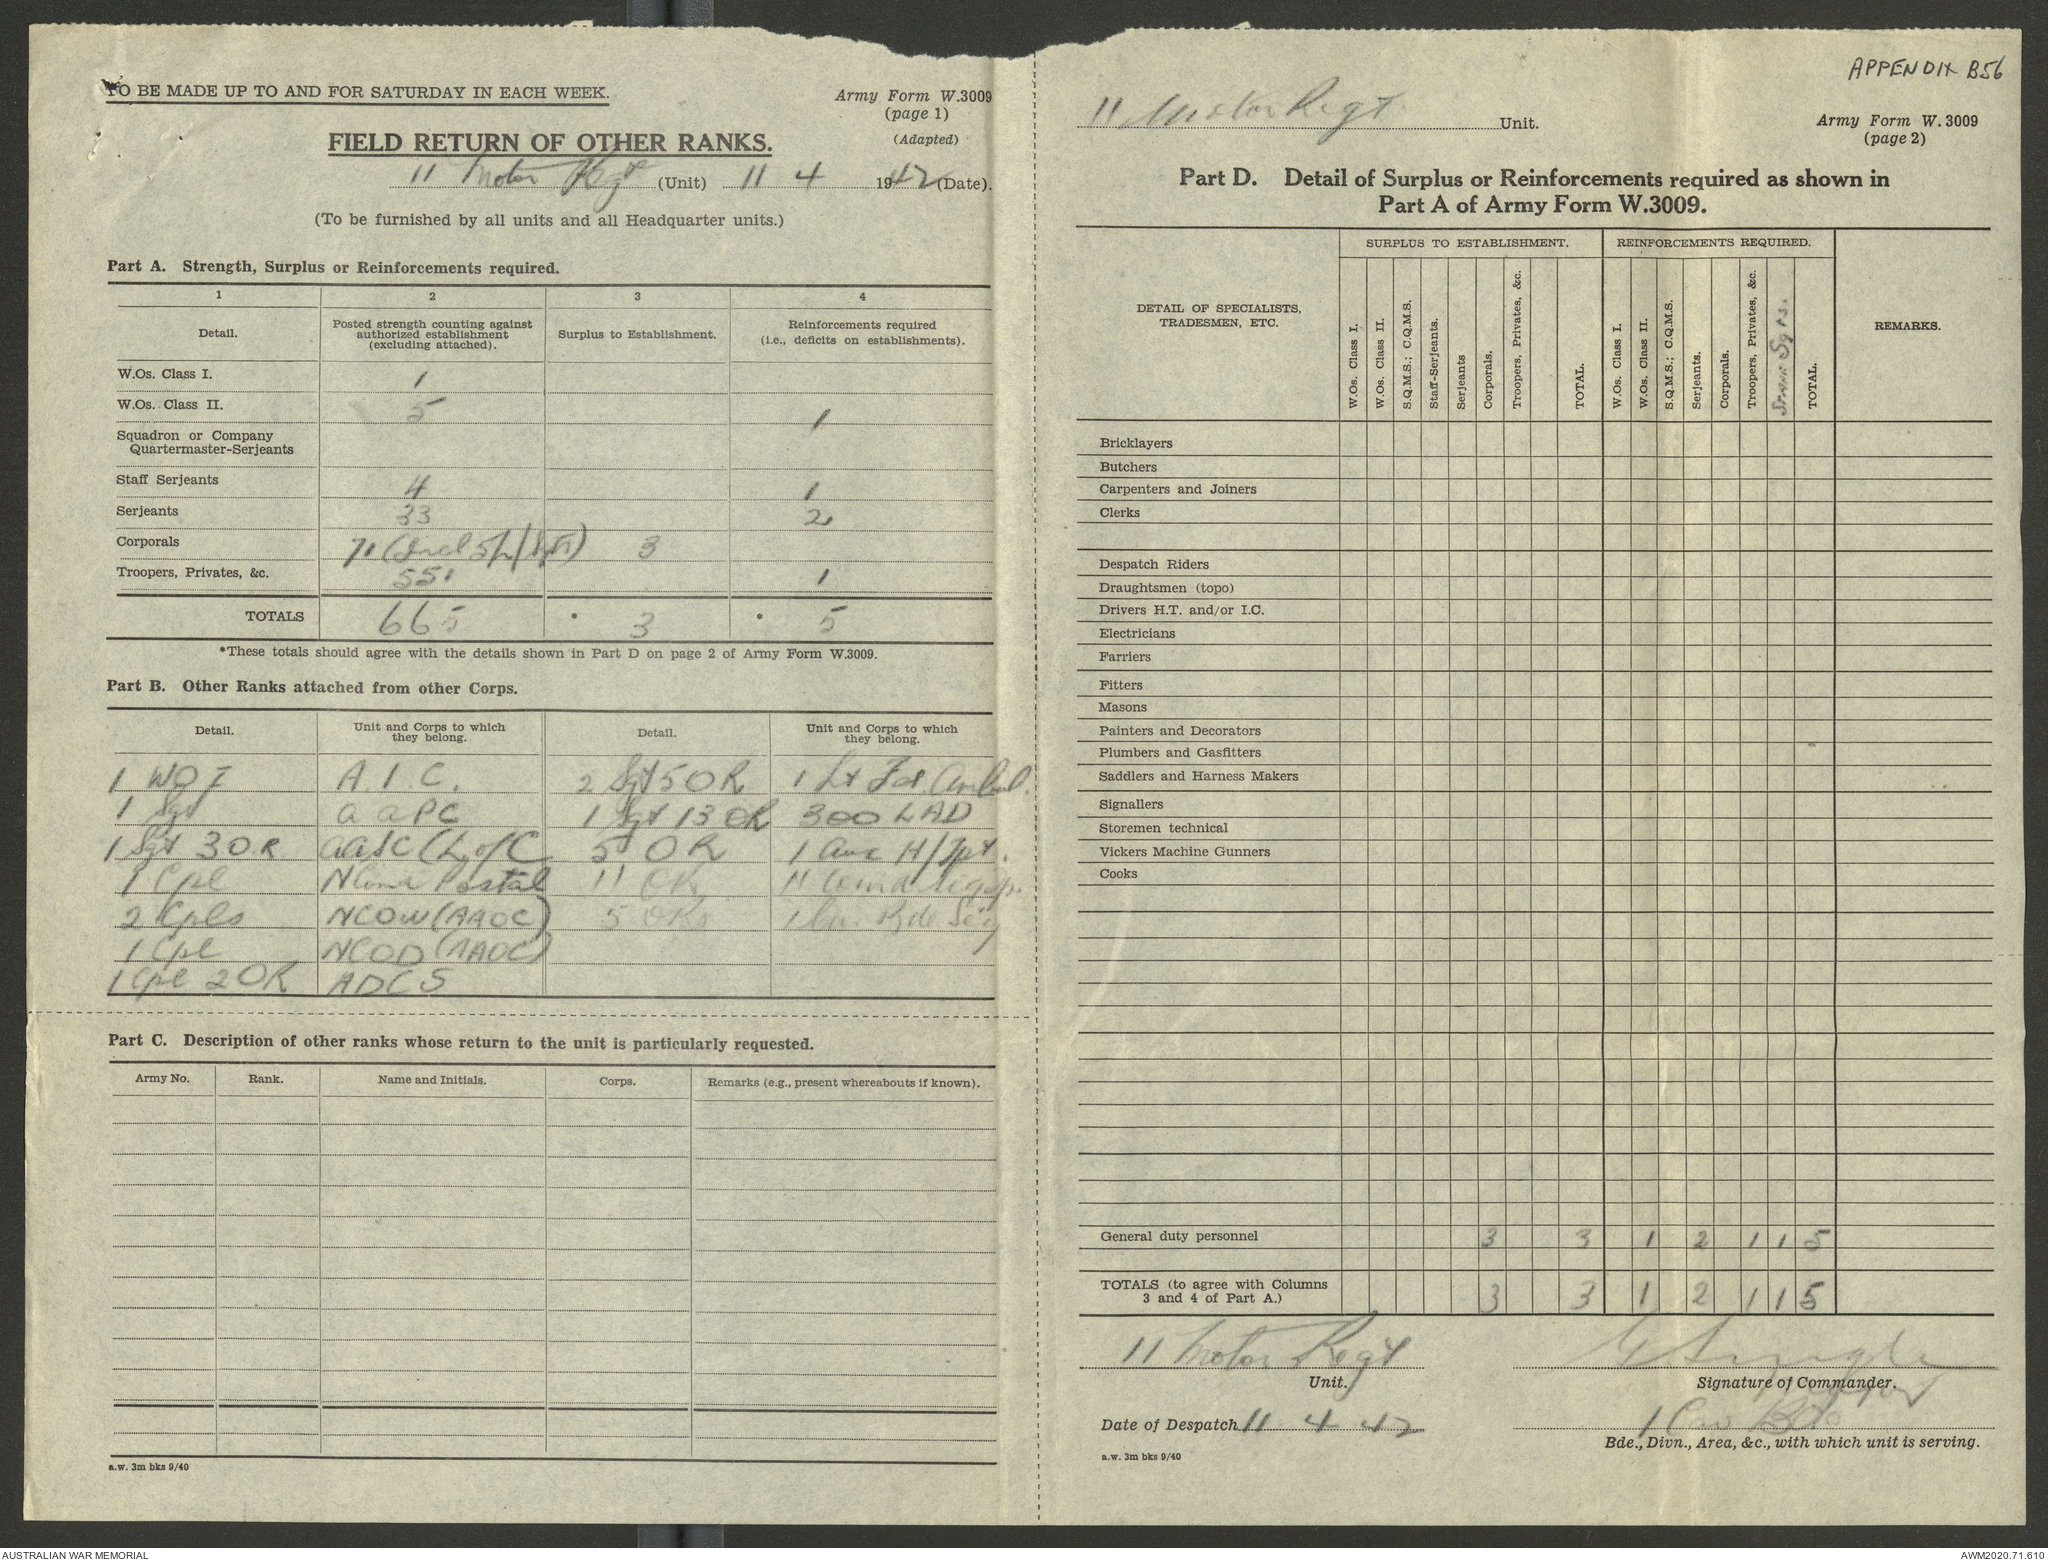 TO BE MADE UP TO AND FOR SATURDAY IN EACH WEEK.
Army Form W.3009
(page 1)
(Adapted)
FIELD RETURN OF OTHER RANKS.
11 Motor Regt (Unit) 11 4 1942 (Date).
(To be furnished by all units and all Headquarter units.)
Part A. Strength, Surplus or Reinforcements required.
1 2 3 4
Detail. Posted strength counting against authorized establishment (excluding attached). Surplus to Establishment. Reinforcements required (i.e., deficits on establishments).
W.Os. Class I. 1
W.Os. Class II. 5 1
Squadron or Company
Quartermaster-Serjeants
Staff Serjeants 4 1
Serjeants 33 2
Corporals 71 (Incl 5 L/Sgts) 3
Troopers, Privates, &c. 551 1
TOTALS 665 * 3 * 5
*These totals should agree with the details shown in Part D on page 2 of Army Form W.3009.
Part B. Other Ranks attached from other Corps.
Detail. Unit and Corps to which they belong. Detail. Unit and Corps to which they belong.
1 WO I A.I.C. 2 Sgt 5 OR 1 Lt Fd. Ambul.
1 Sgt AAPC 1 Sgt 13 OR 300 LAD
1 Sgt 3 OR AASC (L of C 5 OR 1 H/Tpt.
1 Cpl NComd Postal 11 OR 11
2 Cpls NCOW (AAOC) 5 ORs 1 Cav. Bde Sig
1 Cpl NCOD (AAOC)
1 Cpl 2 OR ADCS
Part C. Description of other ranks whose return to the unit is particularly requested.
Army No. Rank. Name and Initials. Corps. Remarks (e.g., present whereabouts if known).
a.w. 3m bks 9/40
APPENDIX B56
11 Motor Regt Unit.
Army Form W.3009
(page 2)
Part D. Detail of Surplus or Reinforcements required as shown in
Part A of Army Form W.3009.
DETAIL OF SPECIALISTS, TRADESMEN, ETC. SURPLUS TO ESTABLISHMENT. REINFORCEMENTS REQUIRED. REMARKS.
W.Os. Class I. W.Os. Class II. S.Q.M.S.; C.Q.M.S. Staff-Serjeants. Serjeants Corporals. Troopers, Privates, &c. TOTAL. W.Os. Class I. W.Os. Class II. S.Q.M.S.; C.Q.M.S. Serjeants. Corporals. Troopers, Privates, &c. Sgts. TOTAL.
Bricklayers
Butchers
Carpenters and Joiners
Clerks
Despatch Riders
Draughtsmen (topo)
Drivers H.T. and/or I.C.
Electricians
Farriers
Fitters
Masons
Painters and Decorators
Plumbers and Gasfitters
Saddlers and Harness Makers
Signallers
Storemen technical
Vickers Machine Gunners
Cooks
General duty personnel 3 3 1 2 1 1 5
TOTALS (to agree with Columns
3 and 4 of Part A.) 3 3 1 2 1 1 5
11 Motor Regt
Unit. Signature of Commander.
Date of Despatch 11 4 42 1 Cav Bde
Bde., Divn., Area, &c., with which unit is serving.
a.w. 3m bks 9/40
AUSTRALIAN WAR MEMORIAL AWM2020.71.610